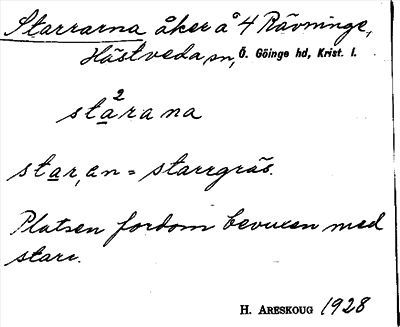 Starrarna åker å 4 Rävninge,
Hästveda sn, Ö. Göinge hd, Krist. l.
2
starana
star, an = starrgräs.
Platsen fordom bevuxen med
starr.
H. ARESKOUG 1928